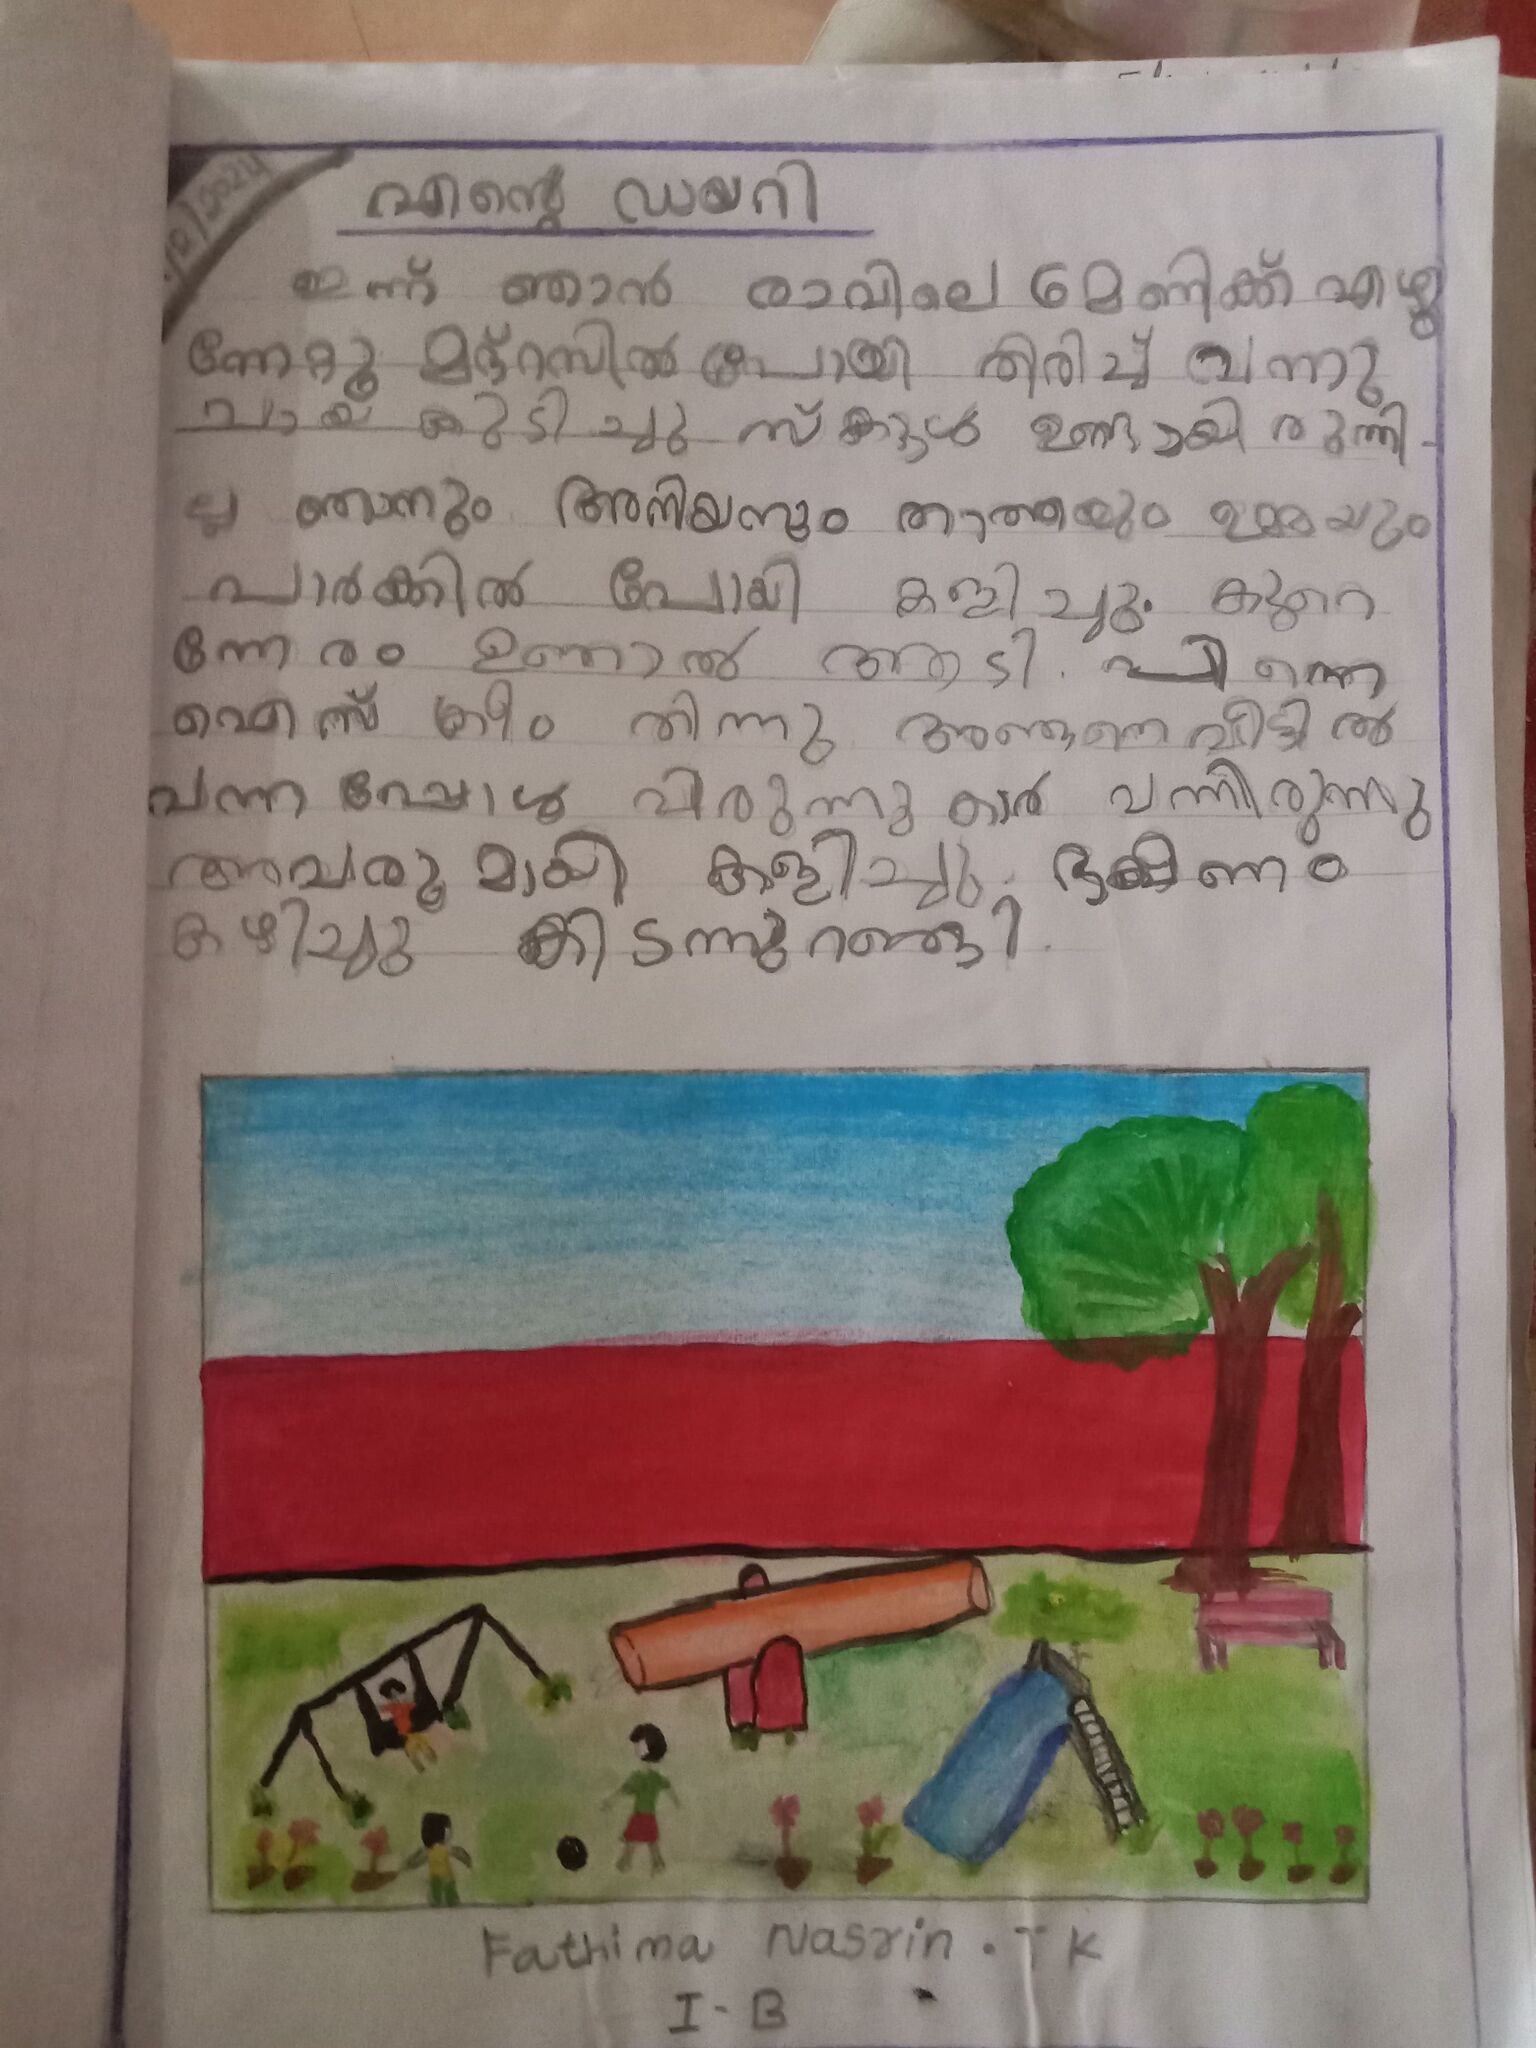 /2024
എന്റെ ഡയറി
ഇന്ന് ഞാൻ രാവിലെ 6 മണിക്ക് എഴു
ന്നേറ്റു മദ്റസിൽ പോയി തിരിച്ച് വന്നു
ചായ കുടിച്ചു സ്കൂൾ ഉണ്ടായിരുന്നി-
ല്ല ഞാനും അനിയനും താത്തയും ഉമ്മയും
പാർക്കിൽ പോയി കളിച്ചു. കുറെ
ന്നേരം ഉഞ്ഞാൽ ആടി. പിന്നെ
ഐസ് ക്രീം തിന്നു അങ്ങനെ വീട്ടിൽ
വന്നപ്പോൾ വിരുന്നുകാർ വന്നിരുന്നു
അവരുമായി കളിച്ചു. ഭക്ഷണം
കഴിച്ചു കിടന്നുറങ്ങി.
Fathima Nasrin . T K
I - B